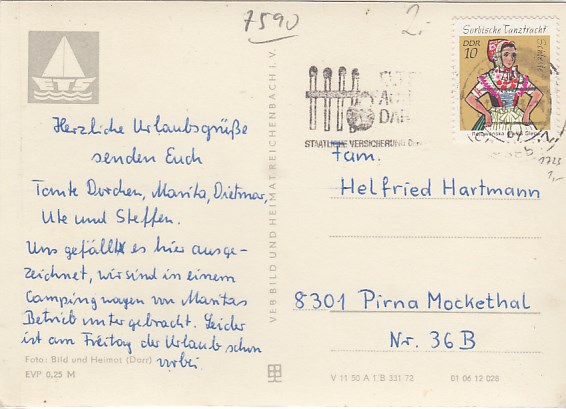 7590
2.-
Sorbische Tanztracht
DDR
10
Schleife
STAATLICHE VERSICHERUNG DER
1725
1,-
Herzliche Urlaubsgrüße
senden Euch
Tante Dorchen, Marita, Dietmar,
Ute und Steffen.
Uns gefällt es hier ausge-
zeichnet, wir sind in einem
Campingwagen von Maritas
Betrieb untergebracht. Leider
ist am Freitag der Urlaub schon
vorbei.
Foto: Bild und Heimat (Darr)
EVP 0,25 M
VEB BILD UND HEIMAT REICHENBACH I. V.
Fam.
Helfried Hartmann
8301 Pirna Mockethal
Nr. 36B
V 11 50 A 1 B 331/72
01 06 12 028